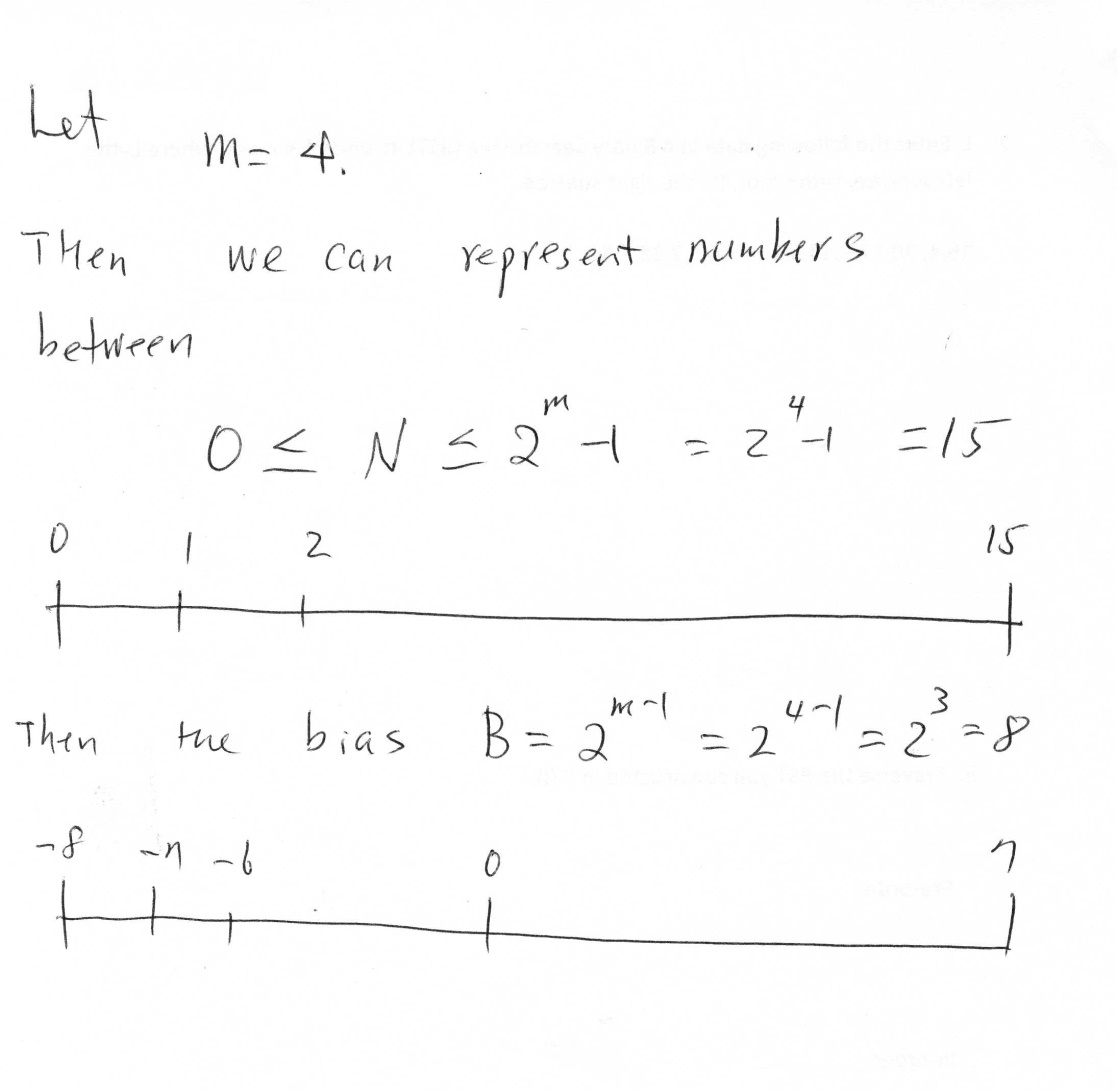 Let
m = 4.
THen we can represent numbers
between
0 ≤ N ≤ 2^m -1 = 2^4 -1 = 15
0 1 2 15
Then the bias B = 2^m-1 = 2^4-1 = 2^3 = 8
-8 -7 -6 0 7